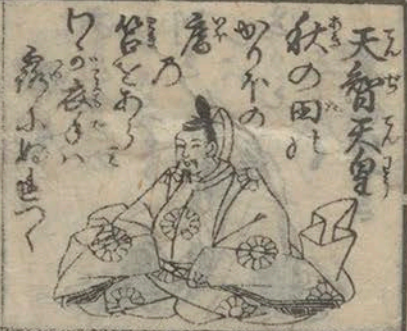 天智天皇
秋の田の
かりほの
庵
の
苫をあらみ
わが衣手は
露にぬれつゝ